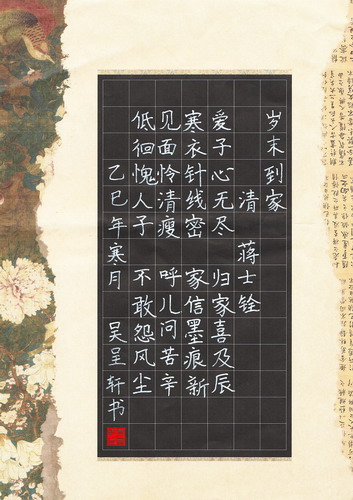 岁末到家
清 蒋士铨
爱子心无尽 归家喜及辰
寒衣针线密 家信墨痕新
见面怜清瘦 呼儿问苦辛
低徊愧人子 不敢怨风尘
乙巳年寒月 吴呈轩书